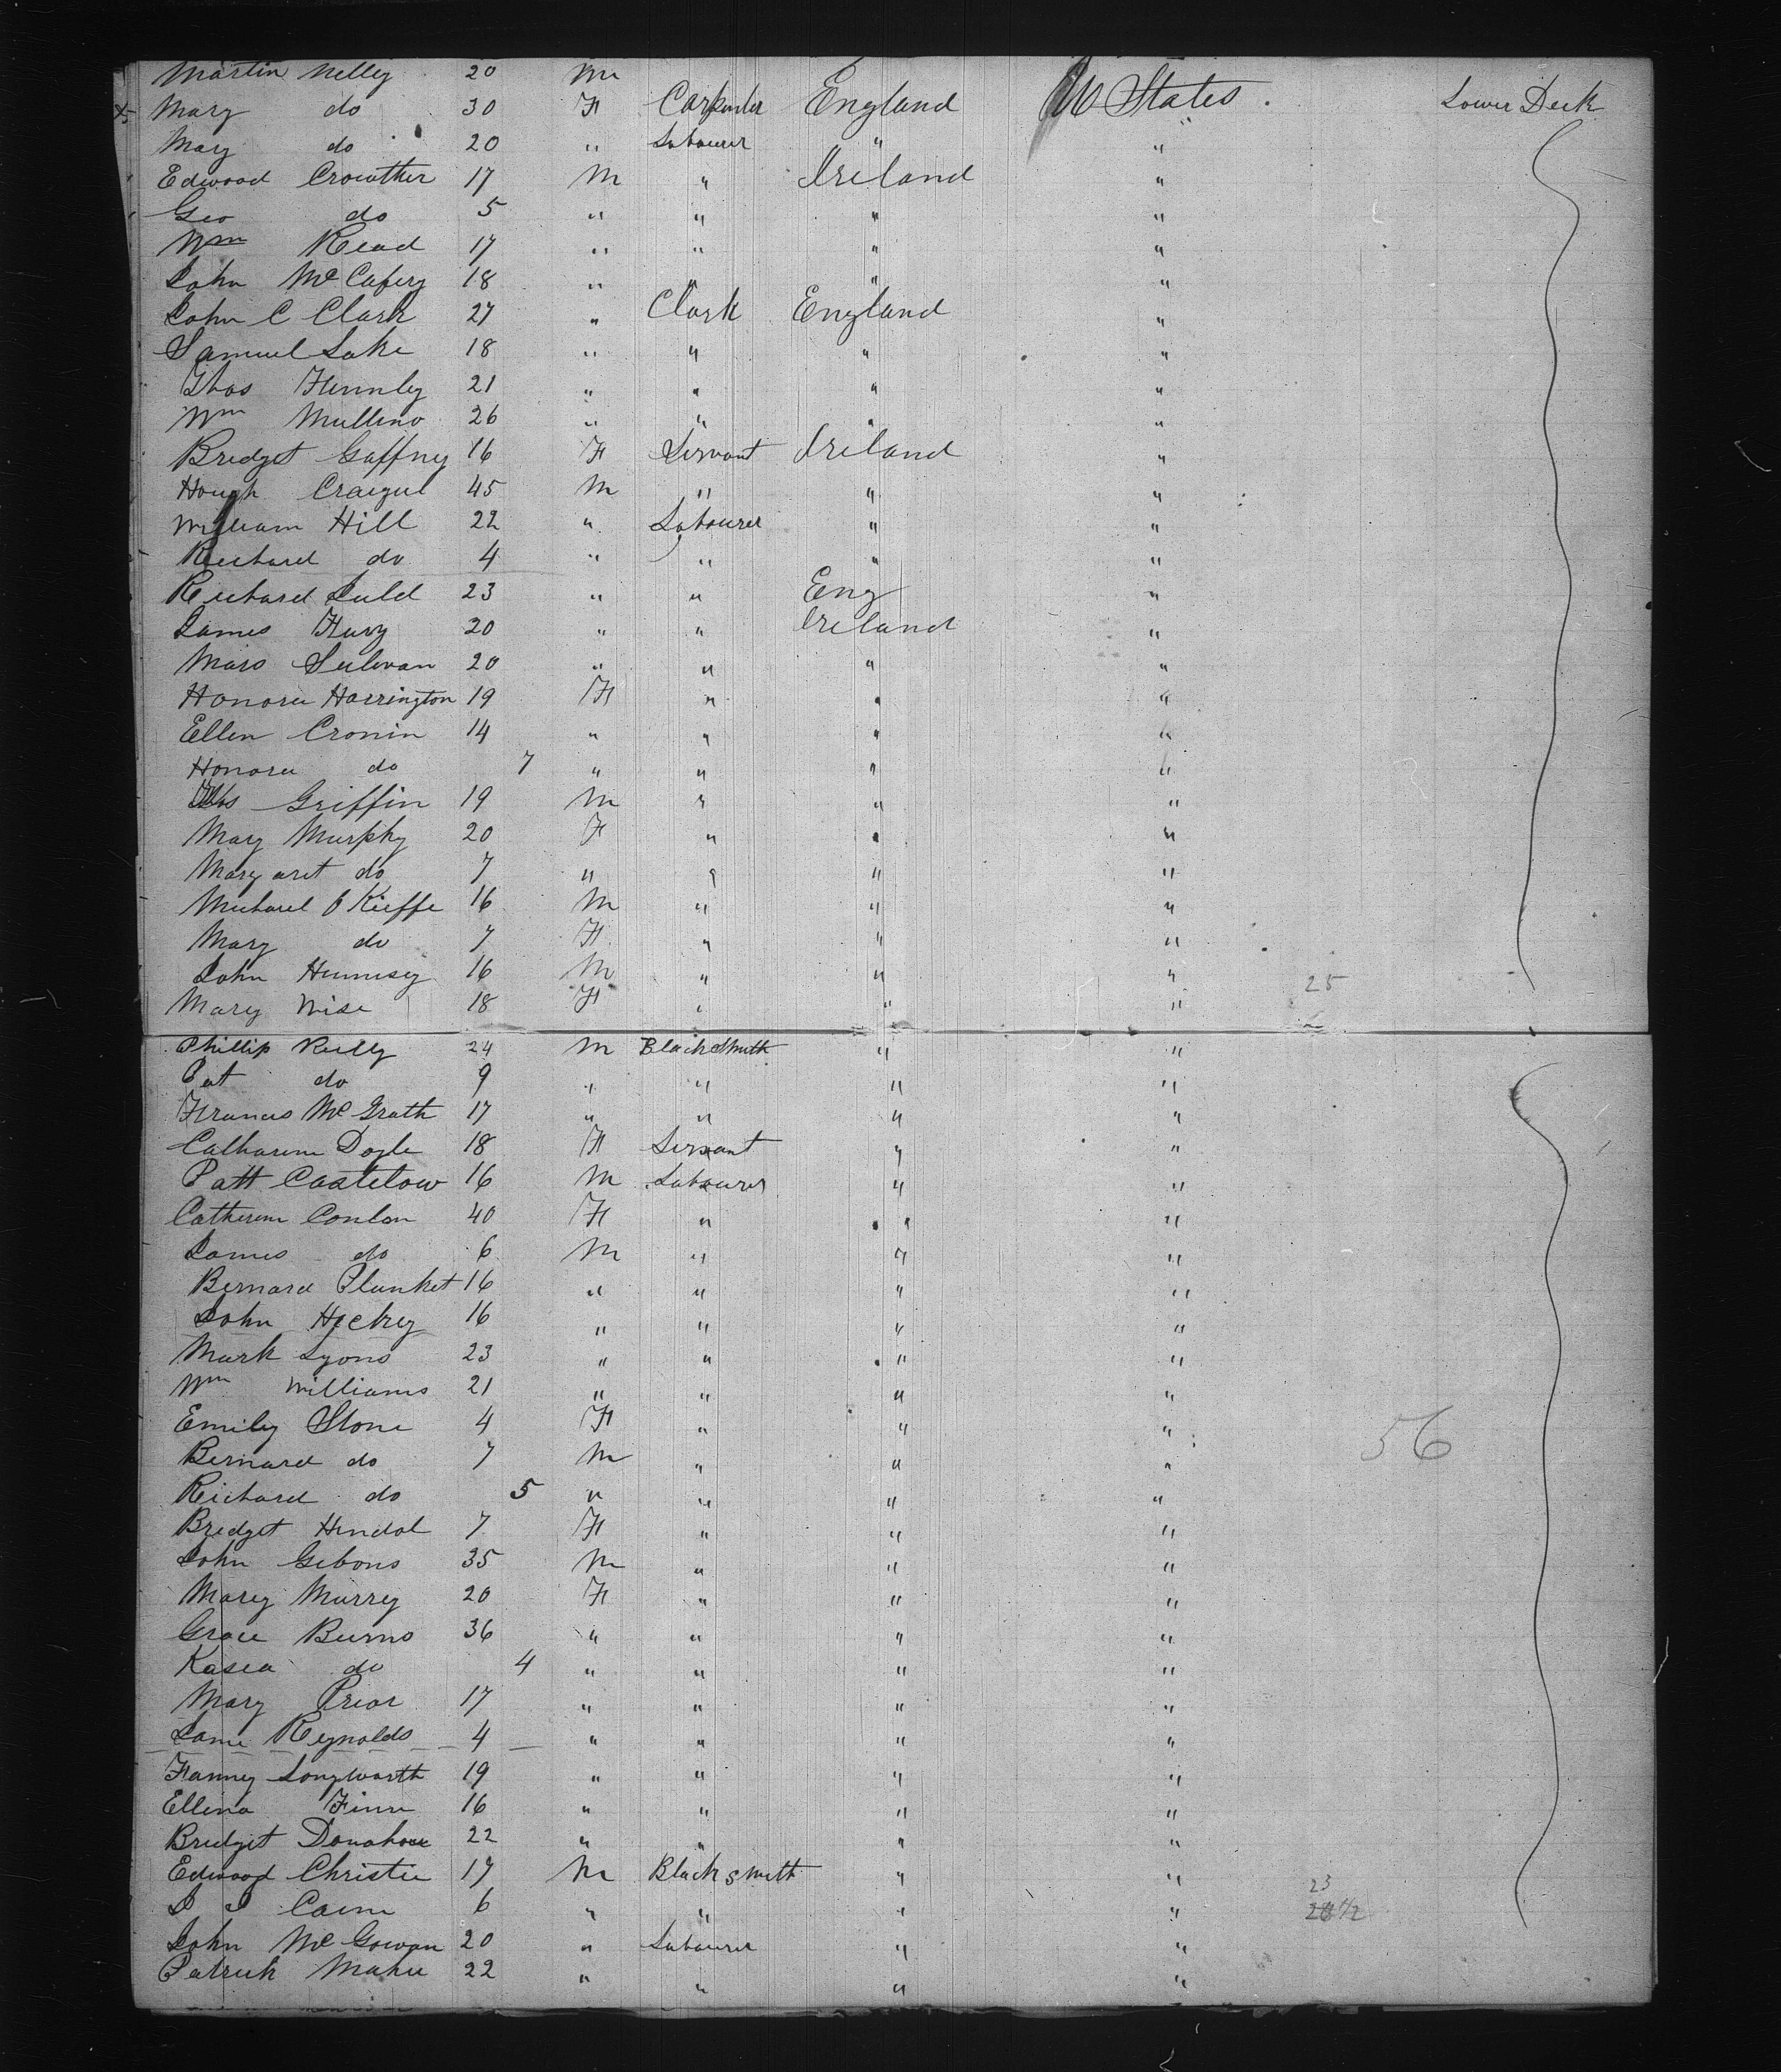 Martin Nelly 20 M
Mary do 30 F Carpenter England U States . Lower Deck
Mary do 20 " Labourer " "
Edwood Crowther 17 M " Ireland "
Geo do 5 " " " "
Wm Read 17 " " " "
John McCafery 18 " " " "
John C Clark 27 " Clark England "
Samuel Lake 18 " " " "
Thos Hennly 21 " " " "
Wm Mullino 26 " " " "
Bredget Gaffney 16 F Servant Ireland "
Hough Craigul 45 M " " "
William Hill 22 " Labourer " "
Richard do 4 " " " "
Richard Luld 23 " " Eng "
James Fury 20 " " Ireland "
Mars Sulivan 20 " " " "
Honora Harrington 19 F " " "
Ellen Cronin 14 " " " "
Honora do 7 " " " "
Griffin 19 M " " "
Mary Murphy 20 F " " "
Margaret do 7 " " " "
Michael O Kieffe 16 M " " "
Mary do 7 F " " "
John Hennisey 16 M " " " 25
Mary Wise 18 F " " "
Phillip Reilly 24 M BlackSmith " "
Pat do 9 " " " "
Francis McGrath 17 " " " "
Catharine Doyle 18 F Servant " "
Patt Castelow 16 M Labourer " "
Catherine Conlan 40 F " " "
James do 6 M " " "
Bernard Plunket 16 " " " "
John Hickey 16 " " " "
Mark Lyons 23 " " " "
Wm Williams 21 " " " "
Emily Stone 4 F " " " 56
Bernard do 7 M " " "
Richard do 5 " " " "
Bredget Hendal 7 F " " "
John Gibons 35 M " " "
Mary Murrey 20 F " " "
Grace Burns 36 " " " "
Kasea do 4 " " " "
Mary Prior 17 " " " "
Jame Reynolds 4 " " " "
Fanney Longworth 19 " " " "
Ellena Finn 16 " " " "
Bredget Donahoue 22 " " " "
Edwood Christie 17 M Blacksmith " " 23
Caine 6 " " " "
John McGowan 20 " Labourer " "
Patrick Mahu 22 " " " "